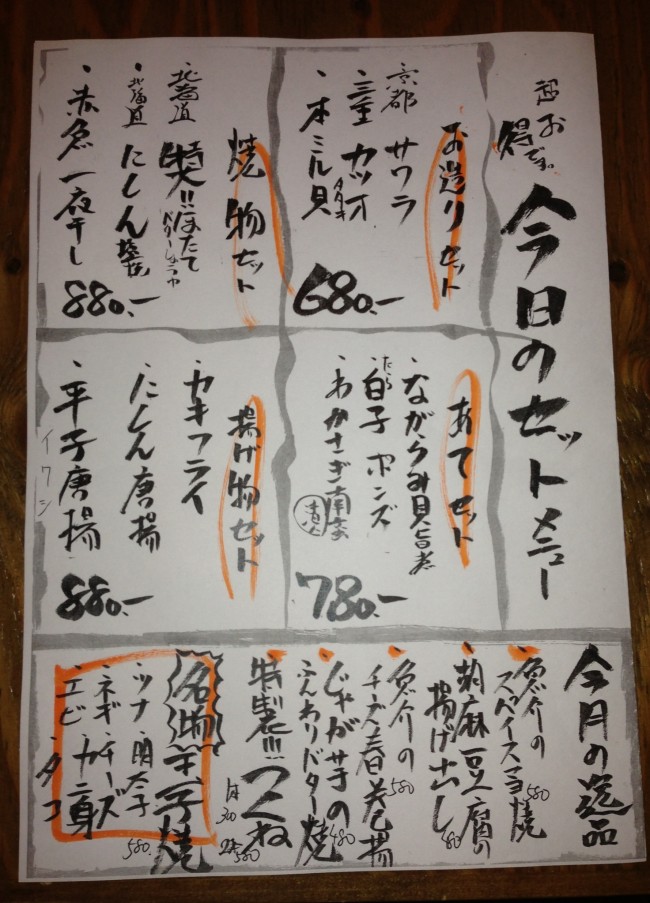 超お得です。
今日のセットメニュー
お造りセット
京都 サワラ
・三重 カツオ タタキ
・本ミル貝
680.-
焼物セット
・北海道 特大!!ほたて
・北海道 にしん
・赤魚一夜干し
880.-
あてセット
・ながらみ貝旨煮
・白子ポンズ
たら
・わかさぎ南蛮
780.-
揚げ物セット
・カキフライ
・にしん唐揚
・平子唐揚
イワシ
880.-
今月の逸品
・魚介のスパイス玉子焼 580
・胡麻豆腐の揚げ出し 480
・魚介のチーズ春巻揚 580
・じゃが芋のふんわりバター焼 480
・特製!!!つくね
名物玉子焼
・ツナ ・明太子
・ネギ ・チーズ
・エビ ・カニ身
・タコ
580.